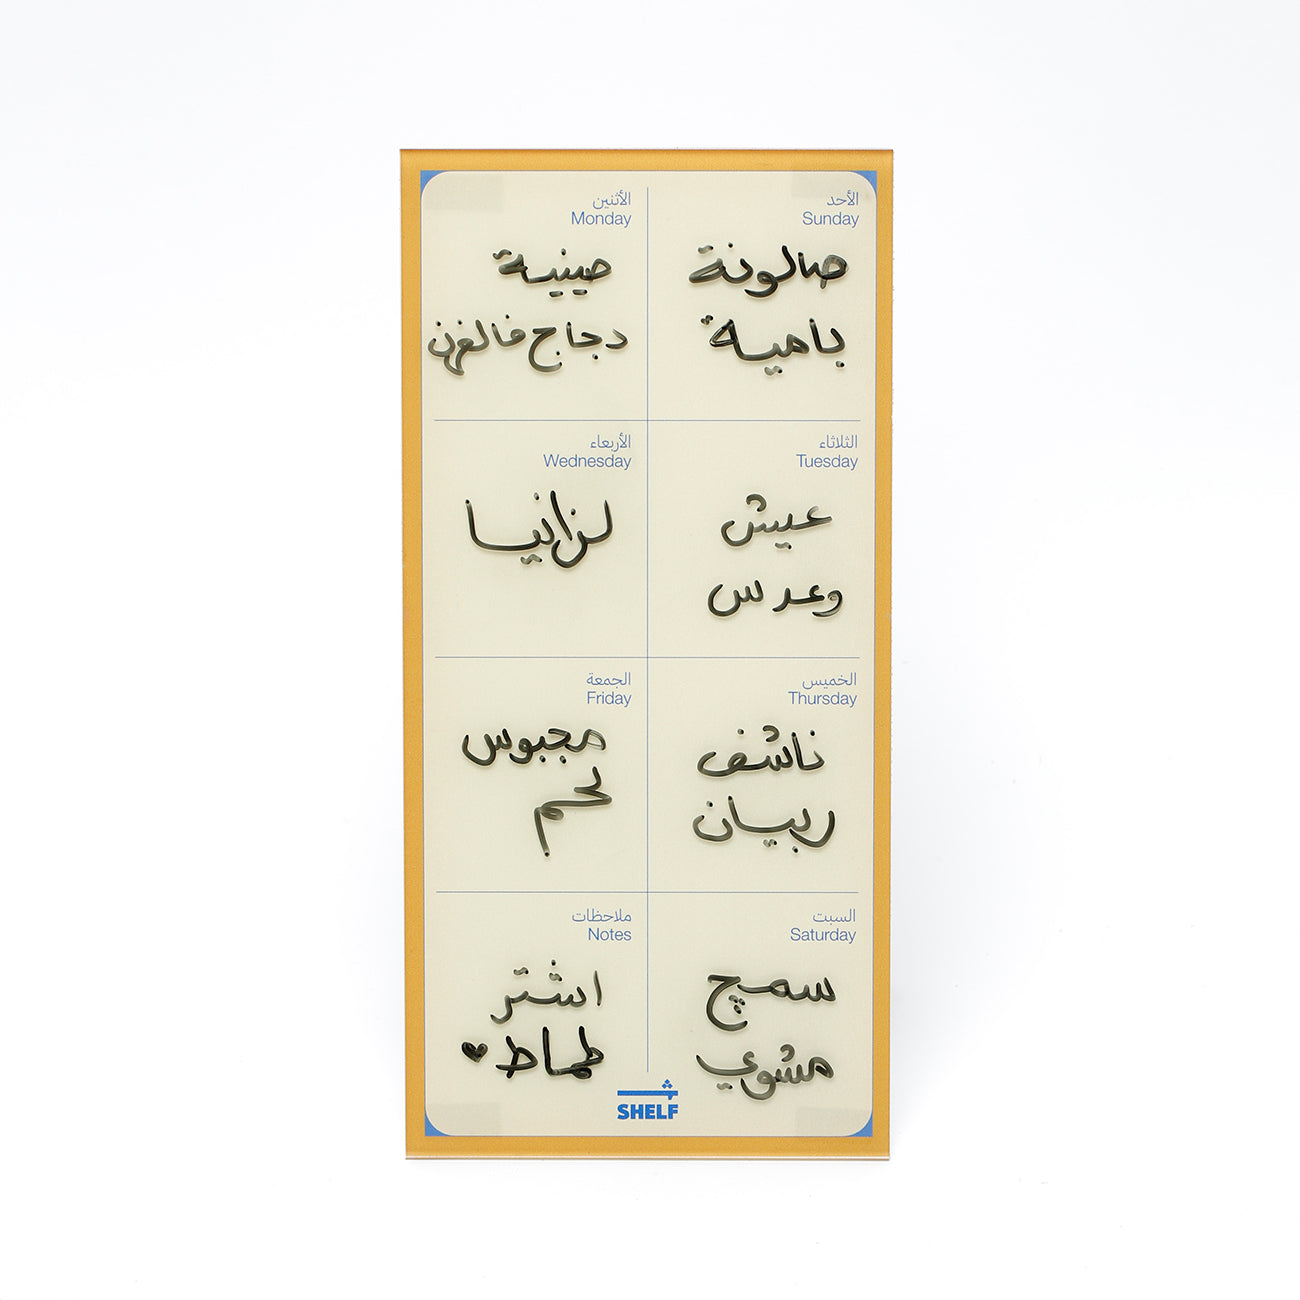 الأحد
Sunday
صالونة
بامية
الأثنين
Monday
صينية
دجاج فالفرن
الثلاثاء
Tuesday
عيش
وعدس
الأربعاء
Wednesday
لزانيا
الخميس
Thursday
ناشف
ربيان
الجمعة
Friday
مجبوس
لحم
السبت
Saturday
سمچ
مشوي
ملاحظات
Notes
اشتر
طماط
SHELF